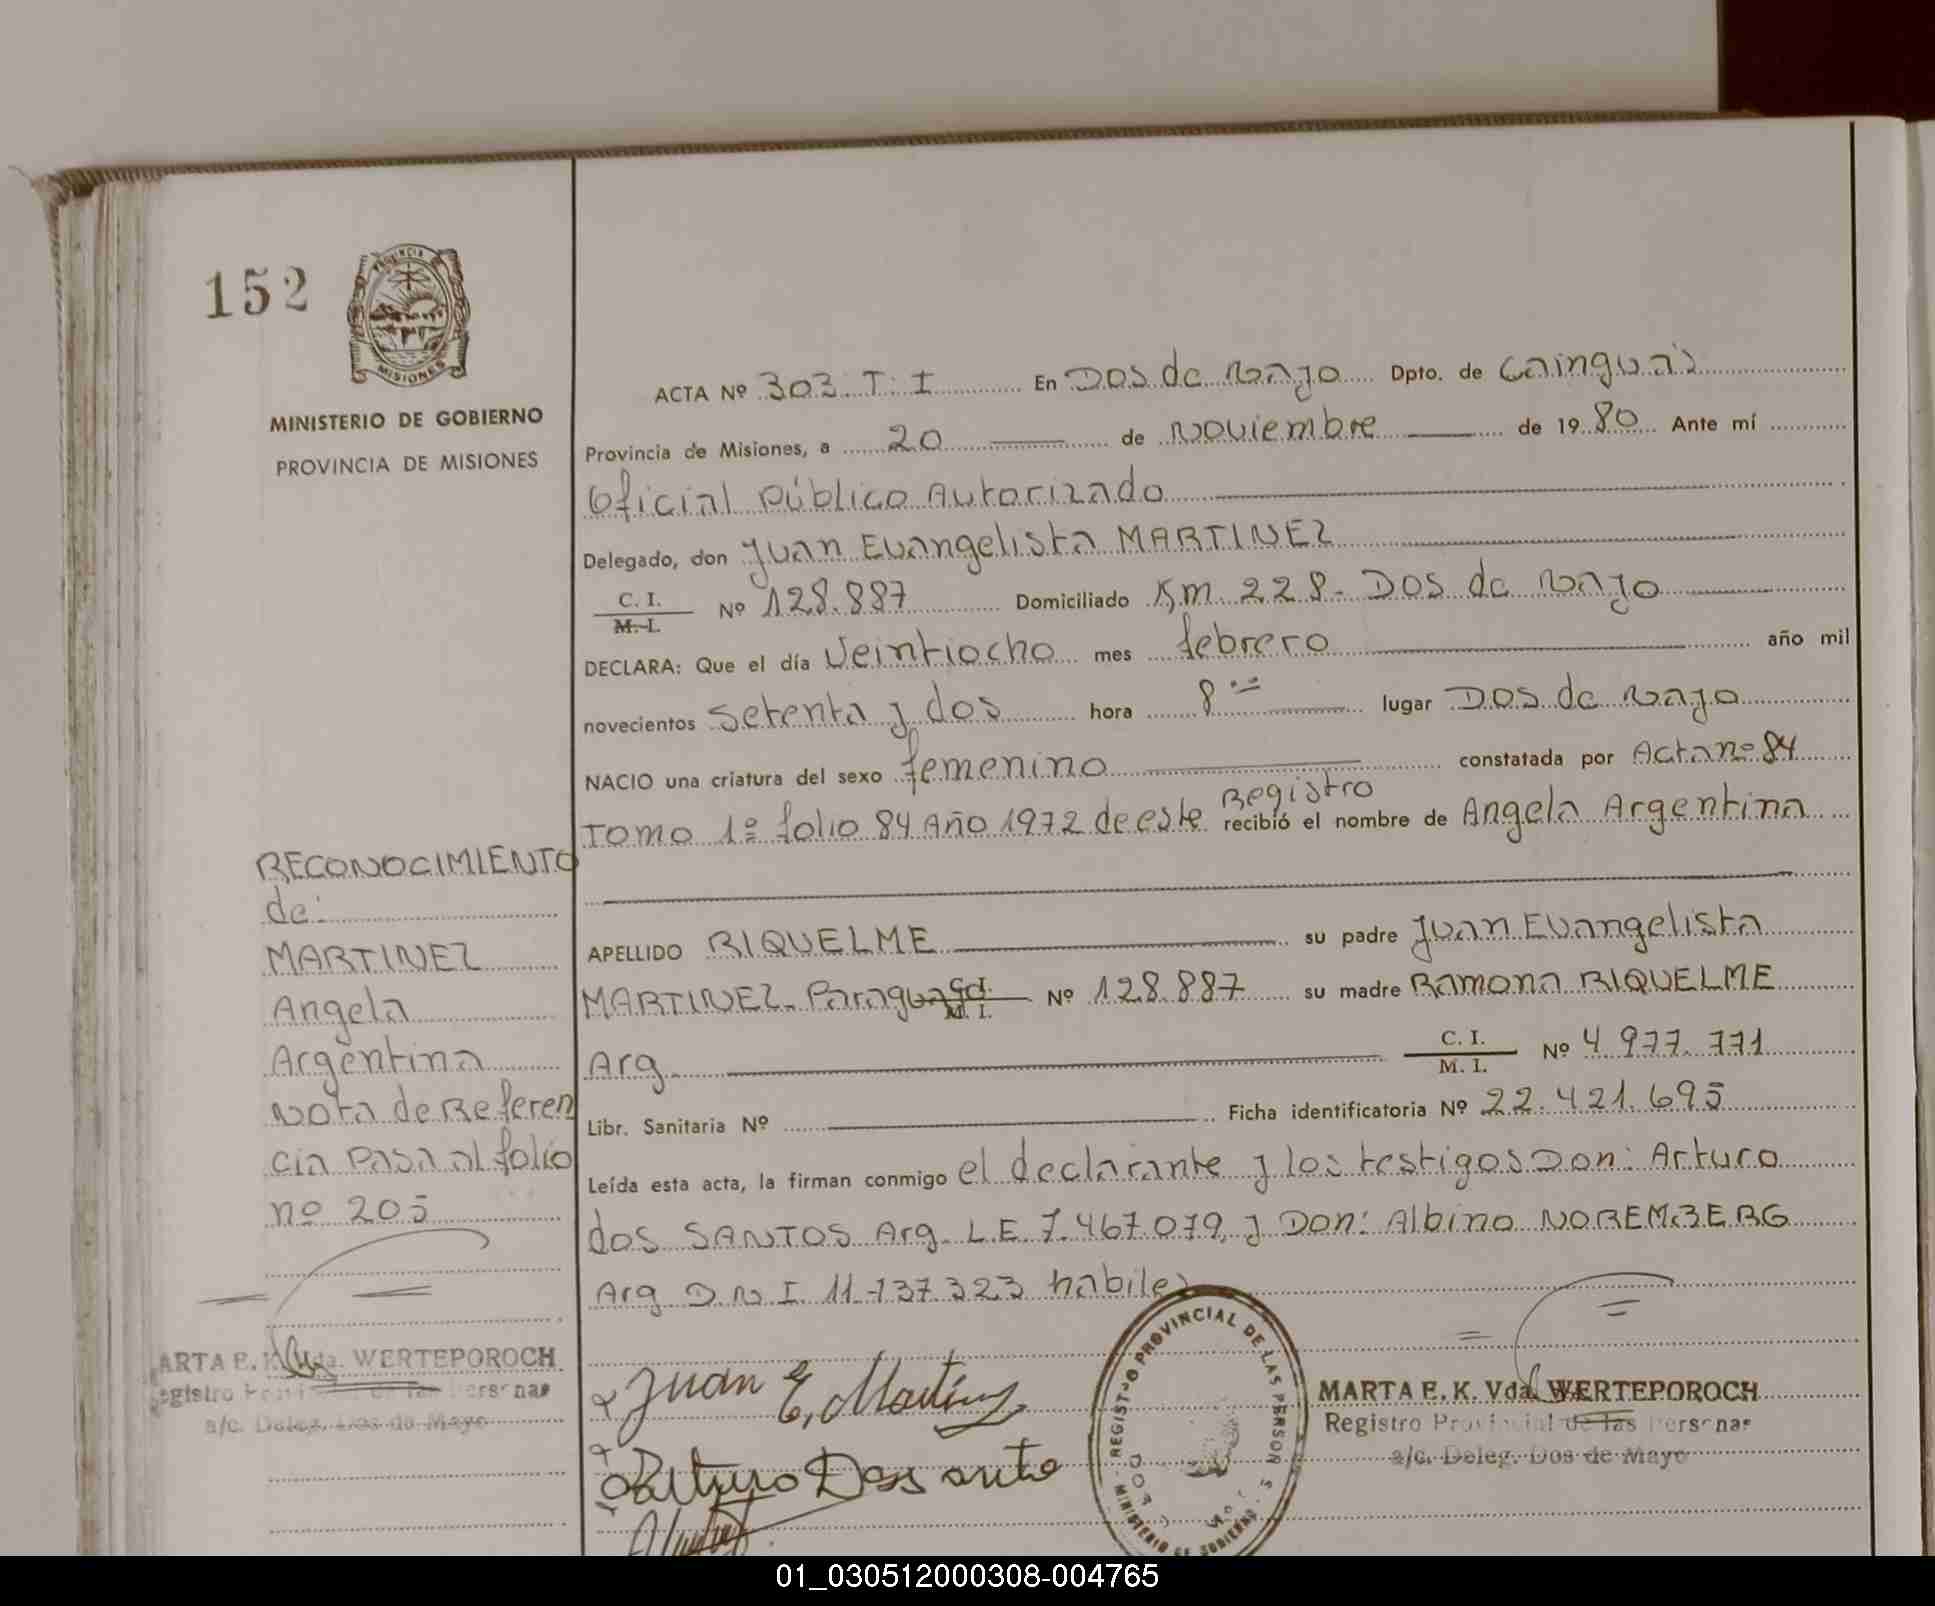 152
PROVINCIA
MISIONES
MINISTERIO DE GOBIERNO
PROVINCIA DE MISIONES
ACTA Nº 303. T: I En Dos de Mayo Dpto. de Cainguás
Provincia de Misiones, a 20 de Noviembre de 1980 Ante mí
Oficial Público Autorizado
Delegado, don Juan Evangelista MARTINEZ
C. I.
M. I. Nº 128.887 Domiciliado Km. 228- Dos de Mayo
DECLARA: Que el día Veintiocho mes febrero año mil
novecientos setenta y dos hora 8 lugar Dos de Mayo
NACIO una criatura del sexo femenino constatada por Acta nº 84
Tomo 1º folio 84 Año 1972 de este Registro recibió el nombre de Angela Argentina
APELLIDO RIQUELME su padre Juan Evangelista
MARTINEZ- Paraguaya C. I. M. I. Nº 128.887 su madre Ramona RIQUELME
Arg. C. I.
M. I. Nº 4.977.771
Libr. Sanitaria Nº Ficha identificatoria Nº 22.421.695
Leída esta acta, la firman conmigo el declarante y los testigos Don: Arturo
dos SANTOS Arg. L.E. 7.467.079, y Don: Albino NOREMBERG
Arg D.N.I. 11.737.323 habiles
RECONOCIMIENTO
de:
MARTINEZ
Angela
Argentina
Nota de Referen
cia Pasa al folio
nº 205
ARTA E. K. Vda. WERTEPOROCH
egistro Provincial de las Personas
a/c. Deleg. Dos de Mayo
Juan E. Martínez
Arturo Dos santo
REGISTRO PROVINCIAL DE LAS PERSONAS
MINISTERIO DE GOBIERNO
MARTA E. K. Vda. WERTEPOROCH
Registro Provincial de las Personas
a/c. Deleg. Dos de Mayo
01_030512000308-004765